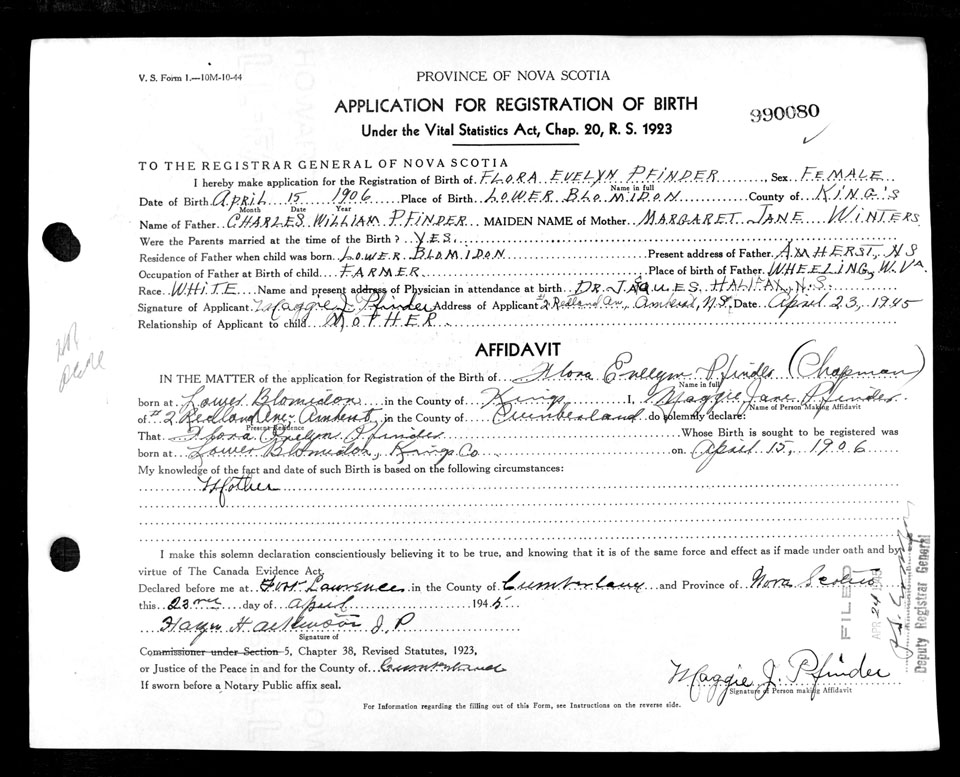 V. S. Form 1.—10M-10-44
PROVINCE OF NOVA SCOTIA
APPLICATION FOR REGISTRATION OF BIRTH
990080
Under the Vital Statistics Act, Chap. 20, R. S. 1923
TO THE REGISTRAR GENERAL OF NOVA SCOTIA
I hereby make application for the Registration of Birth of FLORA EVELYN PFINDER, Sex FEMALE
Name in full
Date of Birth APRIL 15 1906 Place of Birth LOWER BLOMIDON County of KING'S
Month Date Year
Name of Father CHARLES WILLIAM PFINDER MAIDEN NAME of Mother MARGARET JANE WINTERS
Were the Parents married at the time of the Birth? YES
Residence of Father when child was born LOWER BLOMIDON Present address of Father AMHERST, NS
Occupation of Father at Birth of child FARMER Place of birth of Father WHEELING, W. VA.
Race WHITE Name and present address of Physician in attendance at birth DR. JAQUES, HALIFAX, N.S.
Signature of Applicant Maggie J. Pfinder Address of Applicant #2 Redland Av, Amherst, N.S. Date April 23, 1945
Relationship of Applicant to child MOTHER
AFFIDAVIT
IN THE MATTER of the application for Registration of the Birth of Flora Evelyn Pfinder (Chapman)
Name in full
born at Lower Blomidon in the County of Kings I, Maggie Jane Pfinder
Name of Person Making Affidavit
of #2 Redland Ave Amherst, in the County of Cumberland do solemnly declare:
Present Residence
That Flora Evelyn Pfinder Whose Birth is sought to be registered was
born at Lower Blomidon, Kings Co. on April 15, 1906
My knowledge of the fact and date of such Birth is based on the following circumstances:
Mother
I make this solemn declaration conscientiously believing it to be true, and knowing that it is of the same force and effect as if made under oath and by
virtue of The Canada Evidence Act.
Declared before me at Fort Lawrence in the County of Cumberland and Province of Nova Scotia
this 23rd day of April 1945
H. Atkinson J. P.
Signature of
Commissioner under Section 5, Chapter 38, Revised Statutes, 1923,
or Justice of the Peace in and for the County of Cumberland
If sworn before a Notary Public affix seal.
Maggie J. Pfinder
Signature of Person making Affidavit
For Information regarding the filling out of this Form, see Instructions on the reverse side.
FILED
APR 24 1945
Deputy Registrar General